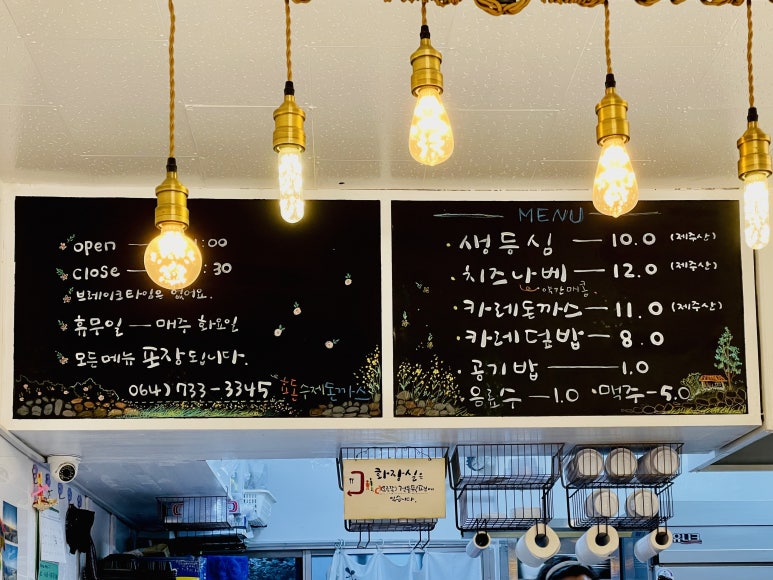 open — :00
close — :30
브레이크타임은 없어요.
휴무일 — 매주 화요일
모든메뉴 포장됩니다.
064) 733-3345 흑돈수제돈까스
MENU
· 생등심 — 10.0 (제주산)
· 치즈나베 — 12.0 (제주산)
약간매콤.
· 카레돈까스 — 11.0 (제주산)
· 카레덮밥 — 8.0
· 공기밥 — 1.0
· 음료수 — 1.0 · 맥주 — 5.0
화장실은
있습니다.